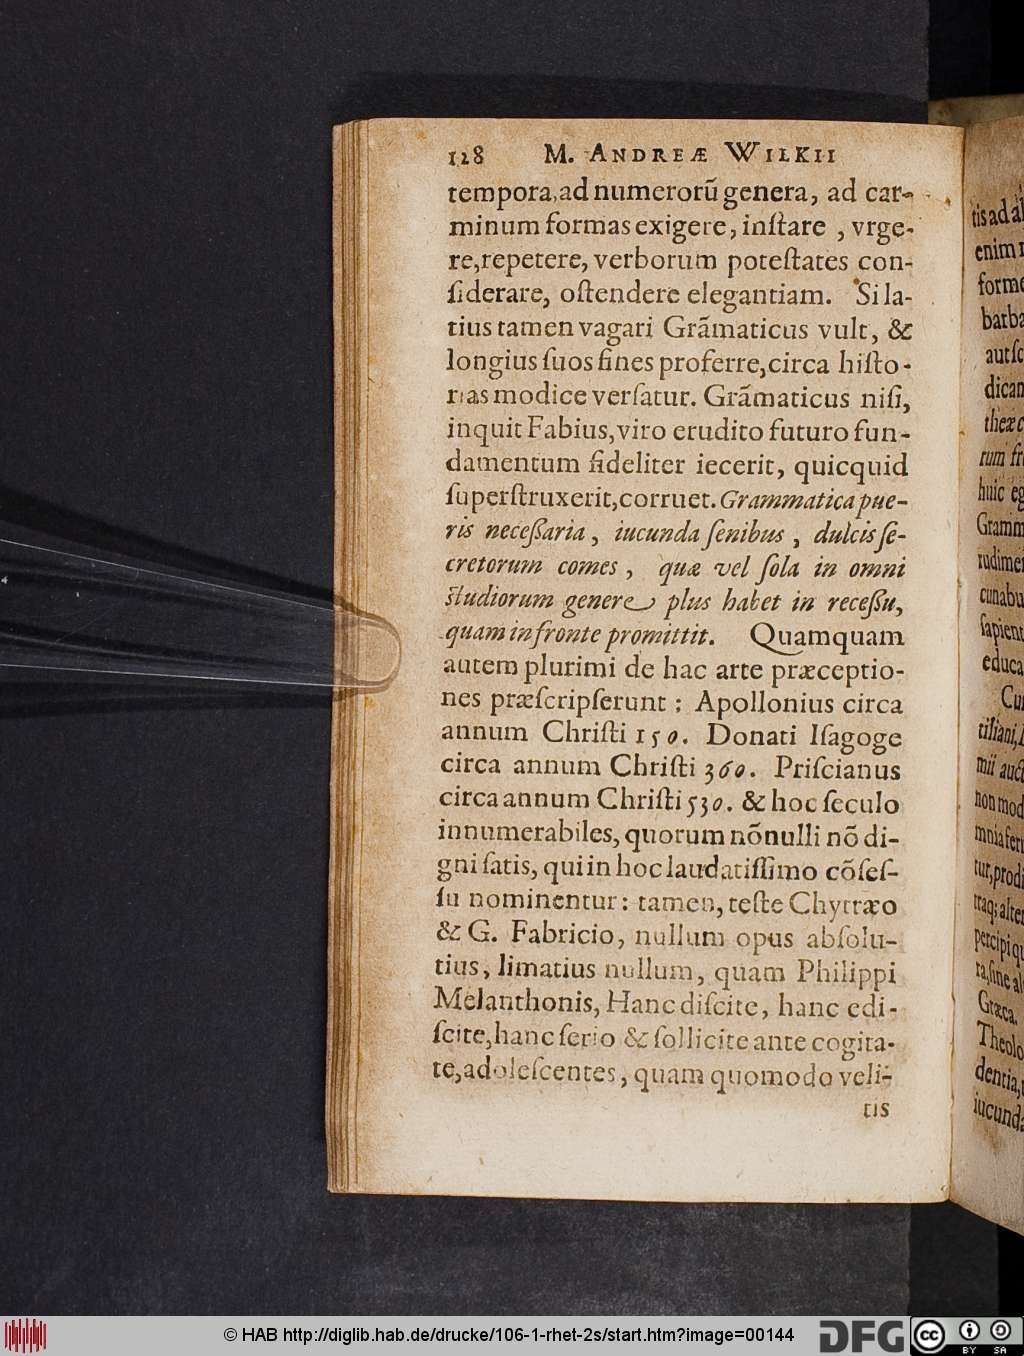 128 M. ANDREÆ WILKII
tempora, ad numerorũ genera, ad car-
minum formas exigere, inſtare , vrge-
re, repetere, verborum poteſtates con-
ſiderare, oſtendere elegantiam. Si la-
tius tamen vagari Grãmaticus vult, &
longius ſuos fines proferre, circa hiſto-
rias modice verſatur. Grãmaticus niſi,
inquit Fabius, viro erudito futuro fun-
damentum fideliter iecerit, quicquid
ſuperſtruxerit, corruet. Grammatica pue-
ris neceßaria , iucunda ſenibus , dulcis ſe-
cretorum comes , quæ vel ſola in omni
ſtudiorum genere plus habet in receßu,
quam in fronte promittit. Quamquam
autem plurimi de hac arte præceptio-
nes præſcripſerunt : Apollonius circa
annum Chriſti 150. Donati Iſagoge
circa annum Chriſti 360. Priſcianus
circa annum Chriſti 530. & hoc ſeculo
innumerabiles, quorum nõnulli nõ di-
gni ſatis, qui in hoc laudatiſſimo cõſeſ-
ſu nominentur : tamen, teſte Chytræo
& G. Fabricio, nullum opus abſolu-
tius, limatius nullum, quam Philippi
Melanthonis, Hanc diſcite, hanc edi-
ſcite, hanc ſerio & ſollicite ante cogita-
te, adoleſcentes, quam quomodo veli-
tis
tis ad
enim
forme
barba
aut ſc
dican
theæ c
rum fr
huic eg
Gramm
rudime
cunabu
ſapient
educa
Cu
tiliani,
mii auct
non mod
mnia feri
tur, prodi
traq; alter
percipi q
ra, ſine al
Græca.
Theolo
dentia,
iucunda
© HAB http://diglib.hab.de/drucke/106-1-rhet-2s/start.htm?image=00144
DFG
cc
BY SA